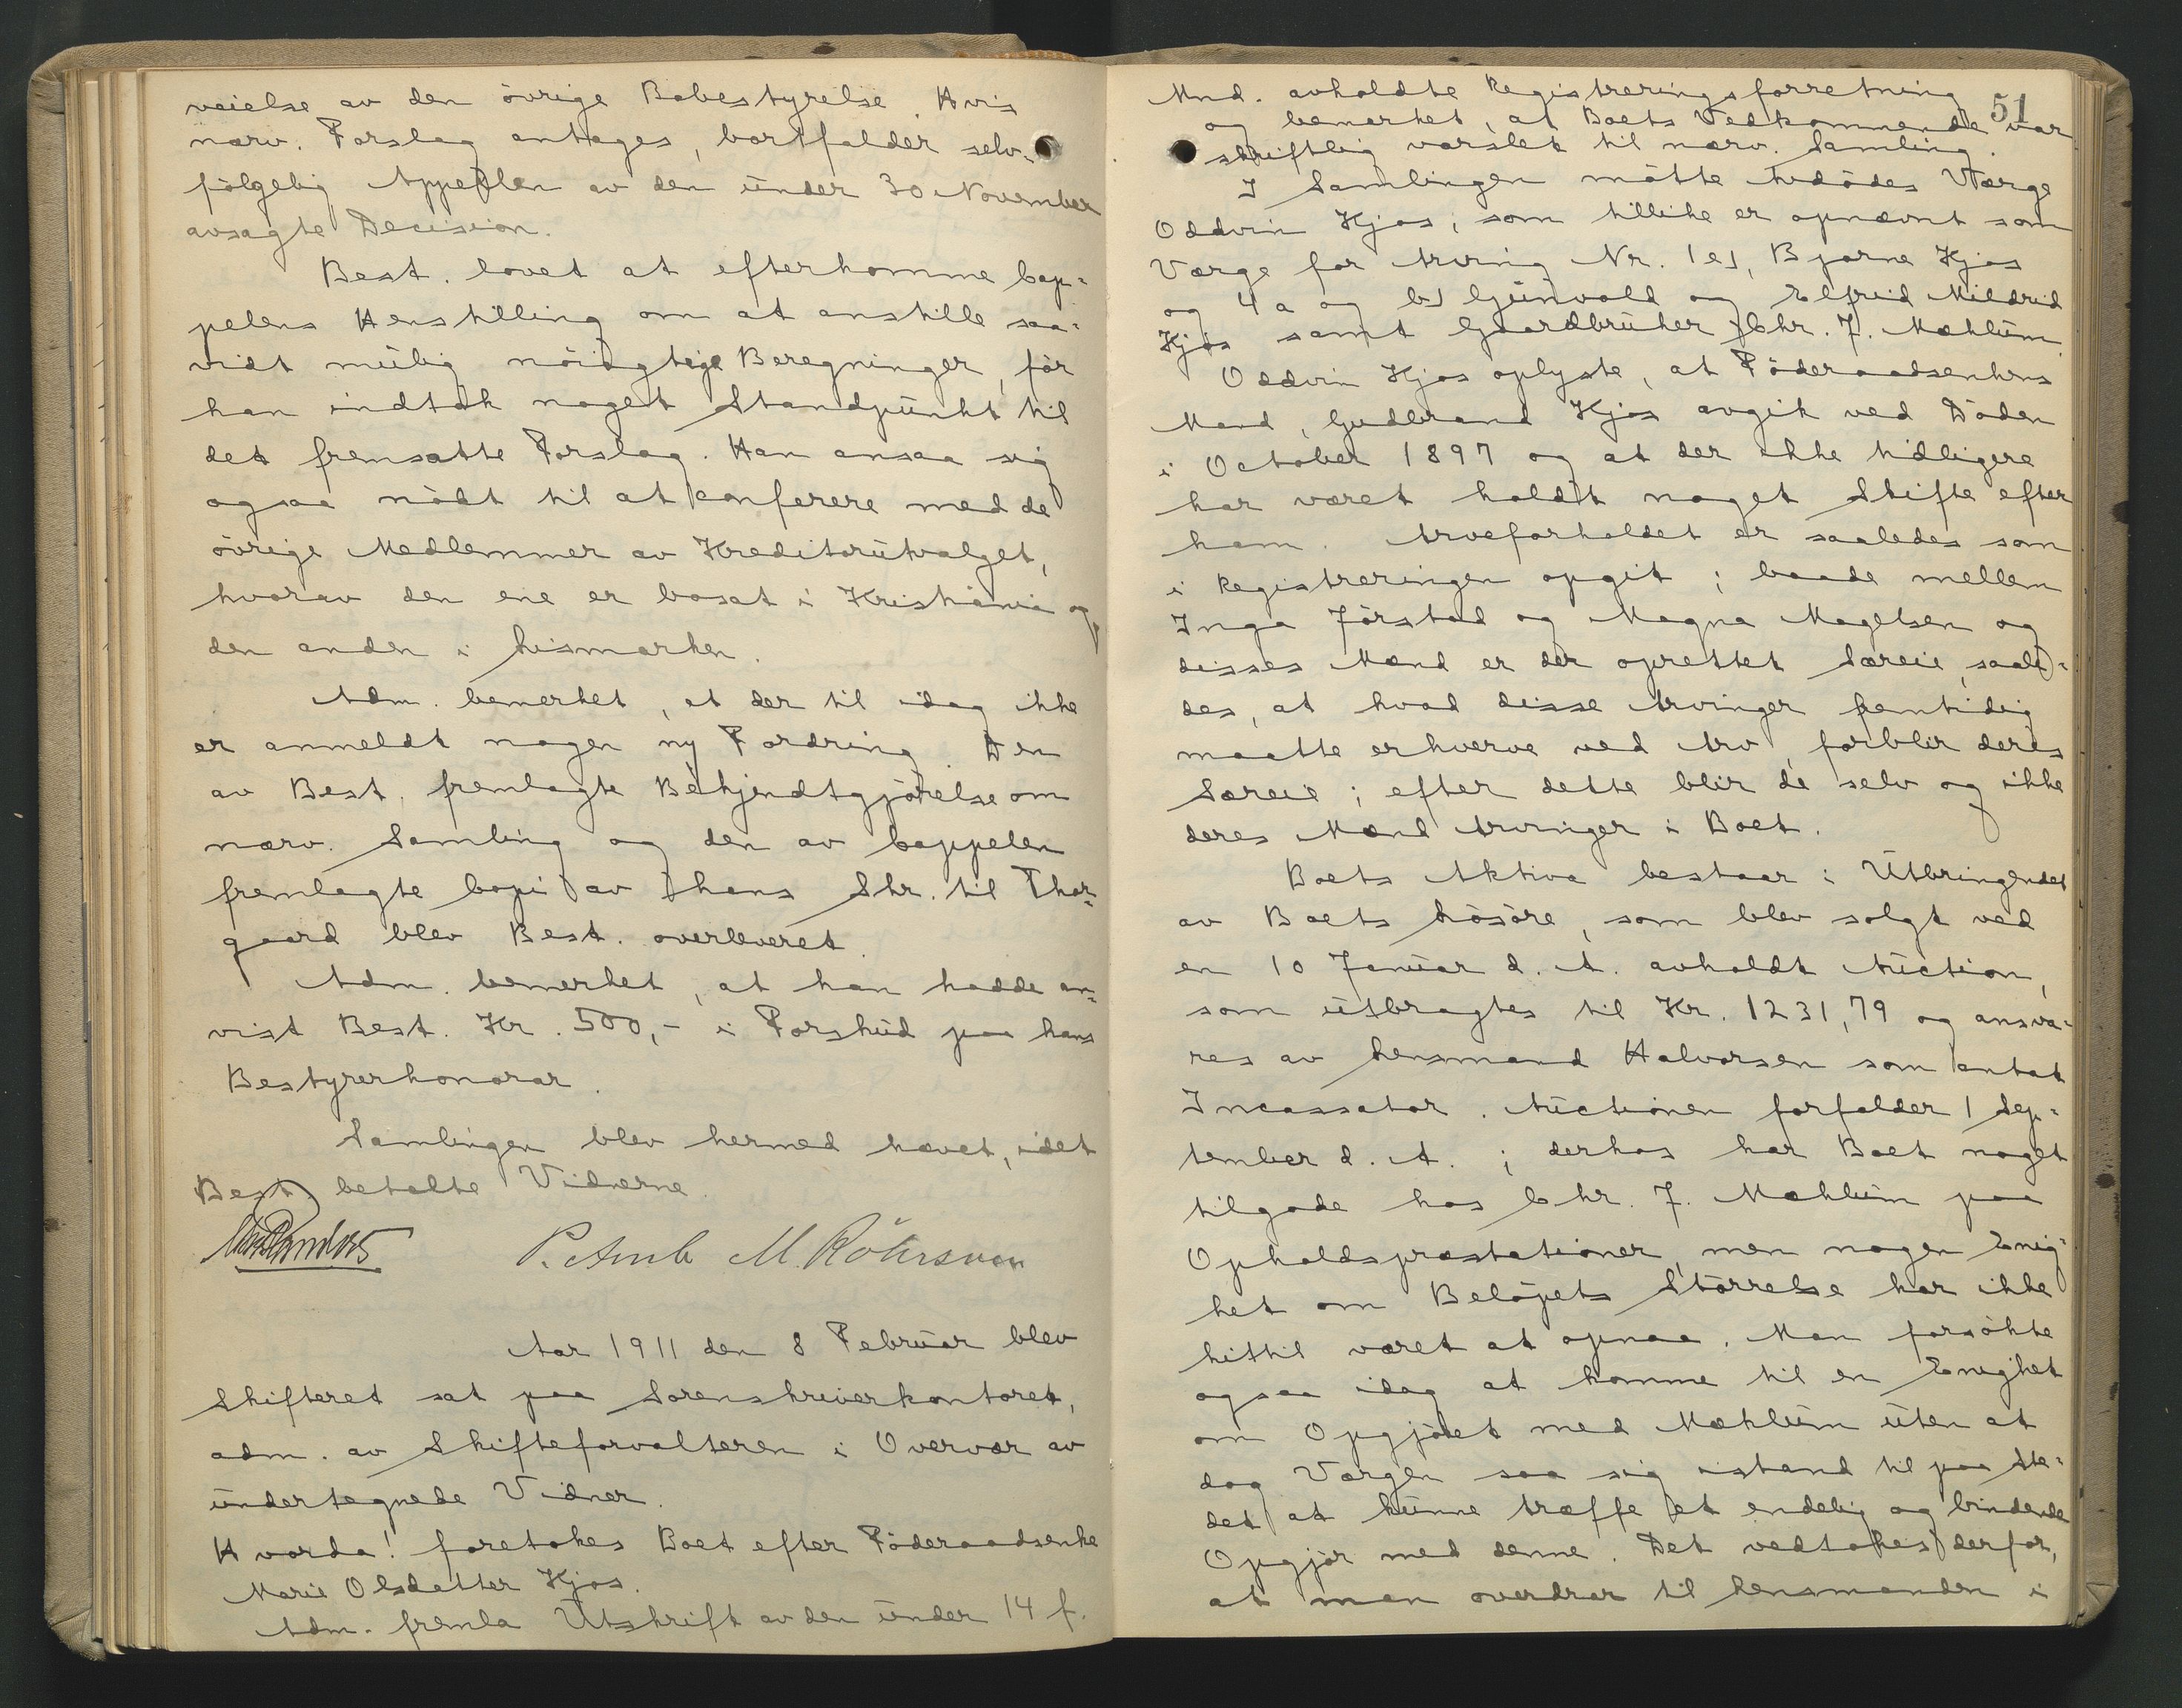 veielse av den övrige Bobestyrelse. Hvis
nærv. Forslag antages, bortfalder selv-
fölgelig Appellen av den under 30 November
avsagte Decision.
Best. lovet at efterkomme Cap-
pelens Henstilling om at anstille saa-
vidt mulig nöiagtige Beregninger, för
han indtok noget Standpunkt til
det fremsatte Forslag. Han ansaa sig
ogsaa nödt til at konferere med de
övrige Medlemmer av Kreditorutvalget,
hvorav den ene er bosat i Kristiania og
den anden i Lismarken.
Adm. bemerket, at der til idag ikke
er anmeldt nogen ny Fordring. Den
av Best. fremlagte Bekjendtgjörelse om
nærv. Samling og den av Cappelen
fremlagte Copi av hans Skr. til Thor-
gaard blev Best. overleveret.
Adm. bemerket, at han hadde an-
vist Best. Kr. 500,- i Forskud paa hans
Bestyrerhonorar.
Samlingen blev hermed hævet, idet
Best. betalte Vidnerne.
P. Amb M. Röhrsveen
Aar 1911 den 8 Februar blev
Skifteret sat paa Sorenskriverkontoret,
adm. av Skifteforvalteren i Overvær av
undertegnede Vidner.
Hvorda! foretokes Boet efter Föderaadsenke
Marie Olsdatter Kjos.
Adm. fremla Utskrift av den under 14 f.
51
Mnd. avholdte Registreringsforretning
og bemerket, at Boets Vedkommende var
skriftlig varslet til nærv. Samling.
I Samlingen mötte Avdödes Værge
Oddvin Kjos, som tillike er opnævnt som
Værge for Arving Nr. 1 e), Bjarne Kjos
og 4 a og b) Gunvald og Elfrid Mildrid
Kjos samt Gaardbruker Chr. J. Mæhlum.
Oddvin Kjos oplyste, at Föderaadsenkens
Mand, Gudbrand Kjos avgik ved Döden
i October 1897 og at der ikke tidligere
har været holdt noget Skifte efter
ham. Arveforholdet er saaledes som
i Registreringen opgit; baade mellem
Inga Jörstad og Magna Magelsen og
disses Mænd er der oprettet Særeie, saale-
des, at hvad disse Arvinger fremtidig
maatte erhverve ved Arv, forblir deres
Særeie; efter dette blir de selv og ikke
deres Mænd Arvinger i Boet.
Boets Aktiva bestaar i Utbringendet
av Boets Lösöre, som blev solgt ved
en 10 Januar d. A. avholdt Auction,
som utbragtes til Kr. 1231,79 og ansva-
res av Lensmand Halvorsen som antat
Incassator. Auctionen forfalder 1 Sep-
tember d. A.; derhos har Boet noget
tilgode hos Chr. J. Mæhlum paa
Opholdspræstationer, men nogen Enig-
het om Belöpets Störrelse har ikke
hittil været at opnaa. Man forsökte
ogsaa idag at komme til en Enighet
om Opgjöret med Mæhlum uten at
dog Værgen saa sig istand til paa Ste-
det at kunne træffe et endelig og bindende
Opgjör med denne. Det vedtokes derfor,
at man overdrar til Lensmanden i